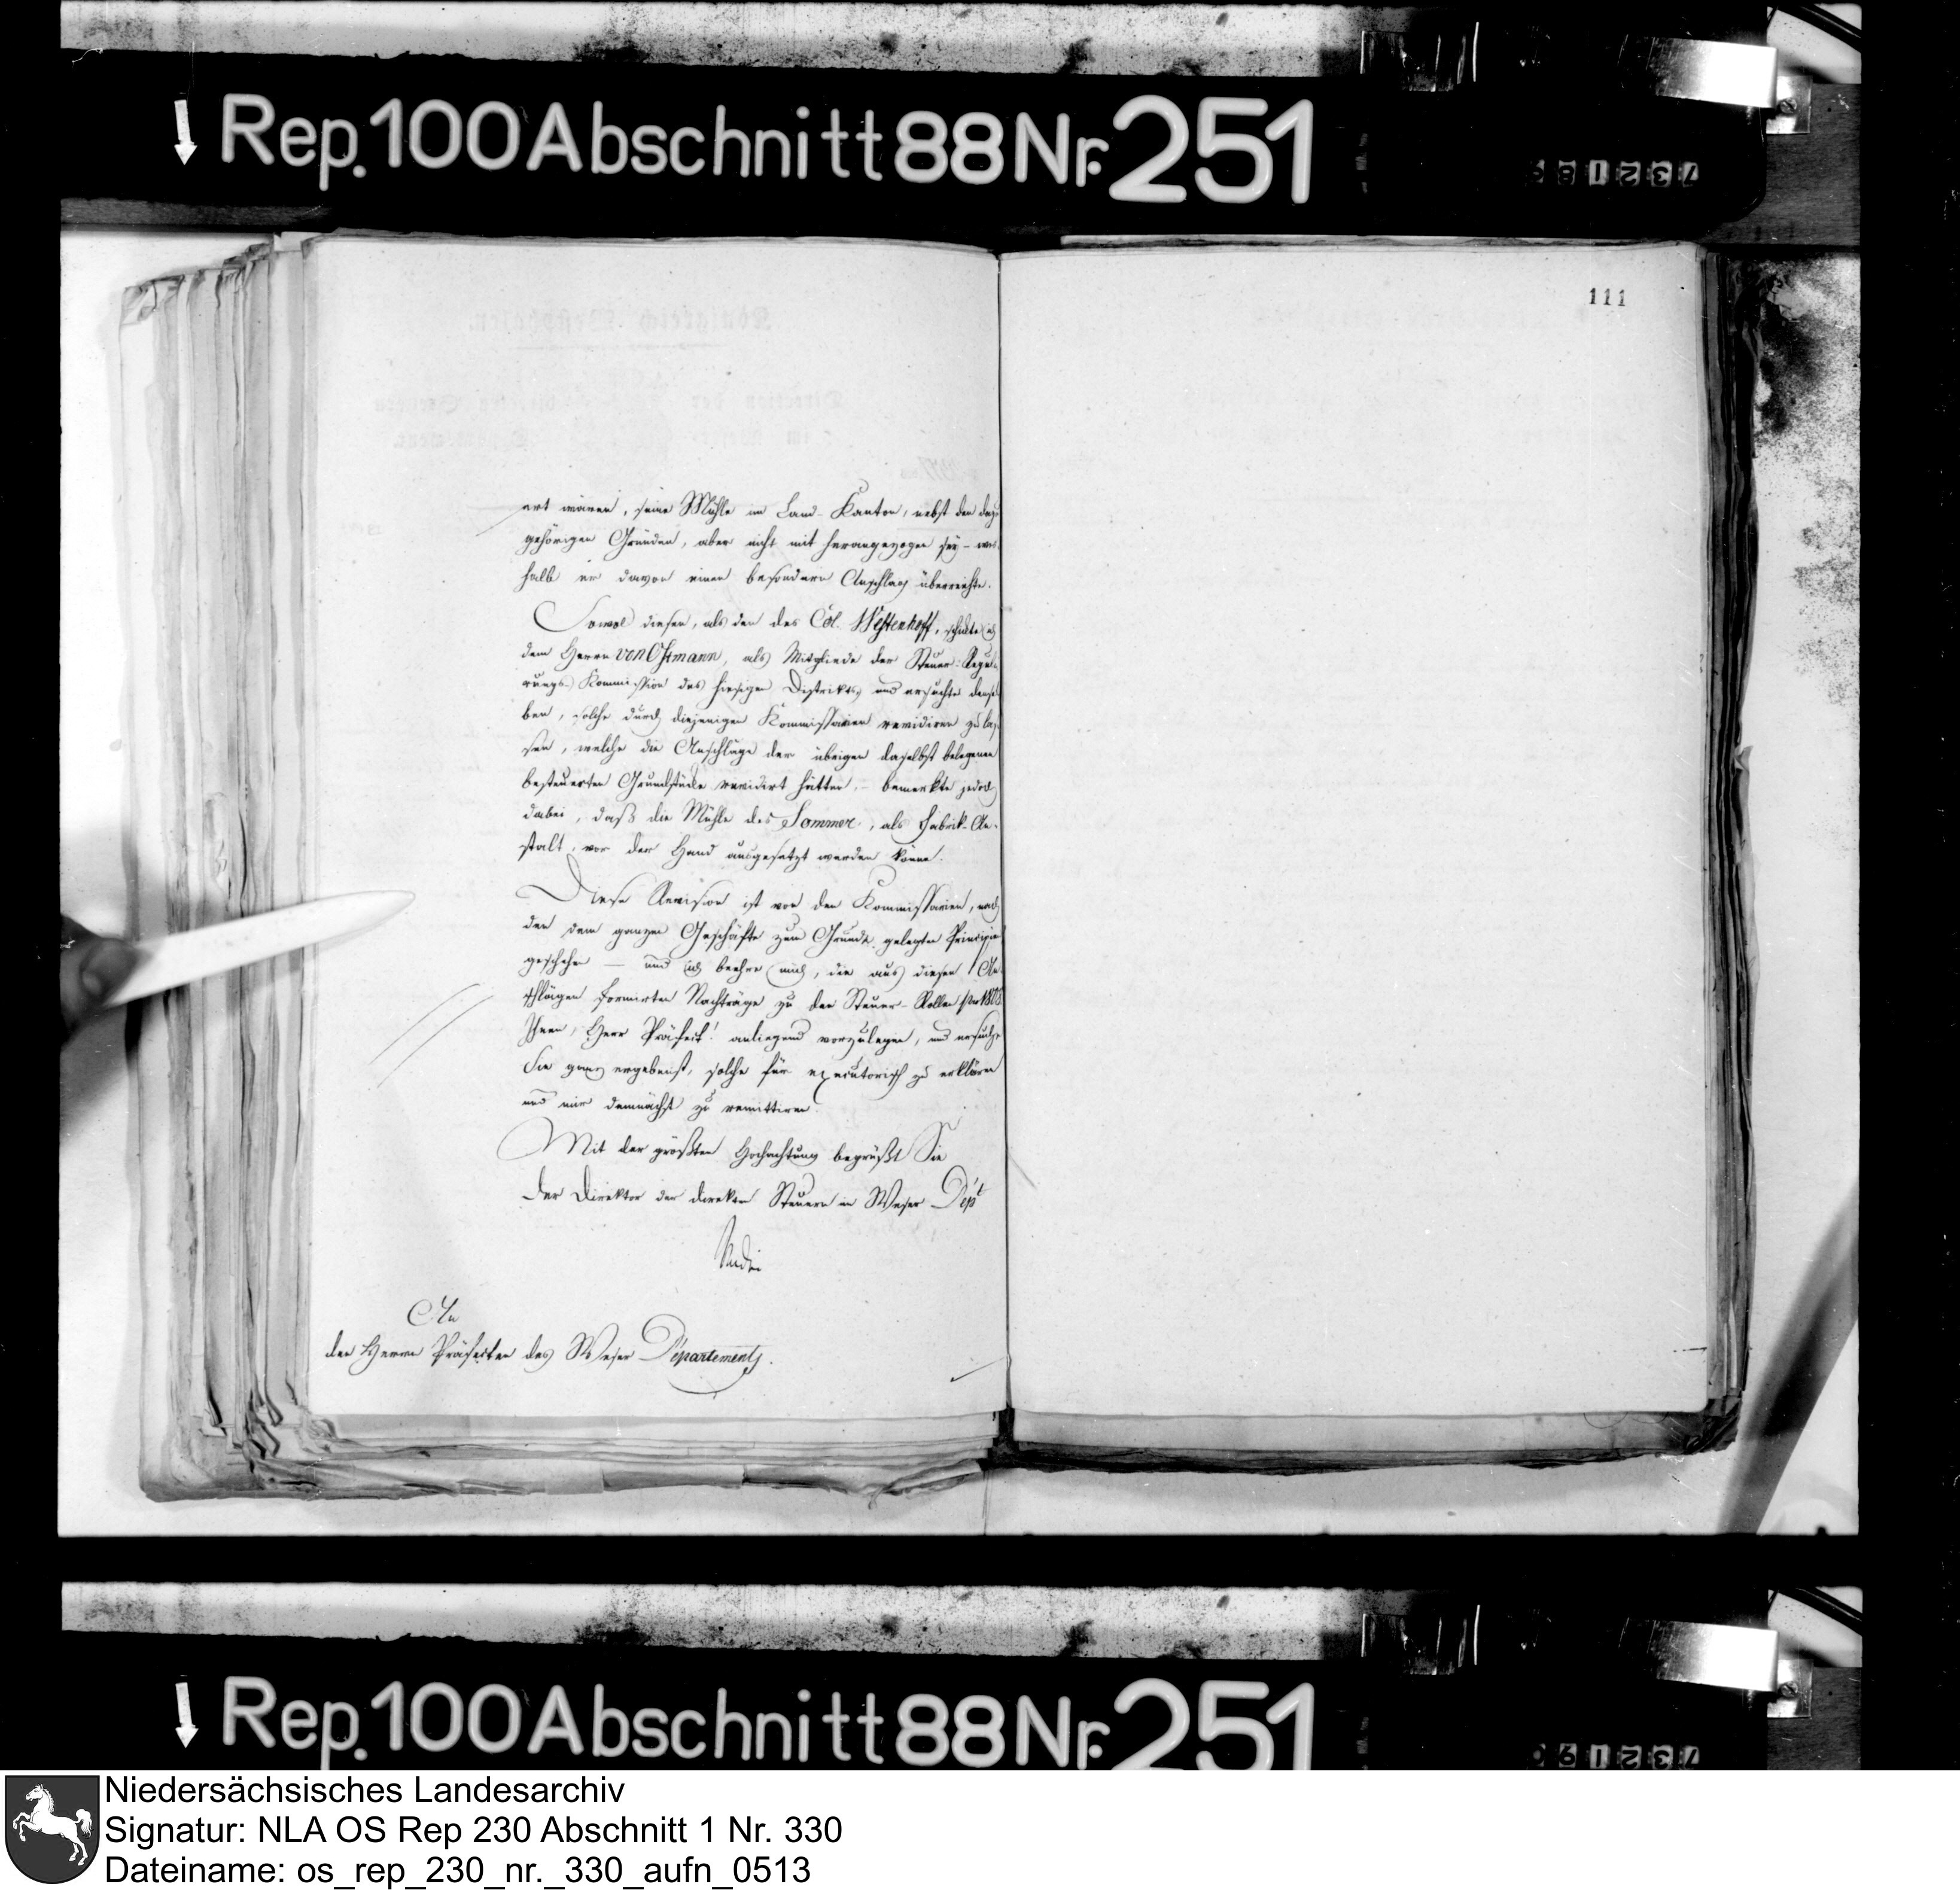 Rep. 100 Abschnitt 88 Nr. 251
111
ert wären, seine Mühle im Land-Kanton, nebst den dazu
gehörigen Gründen, aber nicht mit herangezogen sey – wes¬
halb er davon einen besondern Anschlag überreichte.
Sowol diesen, als den des Col. Westenhoff, schickte ich
dem Herrn von Ostmann, als Mitgliede der Steuer-Reguli¬
rungs-Kommission des hiesigen Distrikts, und ersuchte densel¬
ben, solche durch diejenigen Kommissarien revidiren zu las¬
sen, welche die Anschläge der übrigen daselbst belegenen
besteuerten Grundstücke revidirt hätten, – bemerkte jedoch
dabei, daß die Mühle des Sommer, als Fabrik-An¬
stalt, vor der Hand ausgesetzt werden könne.
Diese Revision ist von den Kommissarien, nach
den dem ganzen Geschäfte zum Grunde gelegten Principien
geschehen – und ich beehre mich, die aus diesen An¬
schlägen formirten Nachträge zu den Steuer-Rollen pro 1808
Ihnen, Herr Präfect! anliegend vorzulegen, und ersuche
Sie ganz ergebenst, solche für executorisch zu erklären
und mir demnächst zu remittiren.
Mit der größten Hochachtung begrüßt Sie
der Direktor der direkten Steuern im Weser Dépt
An
den Herrn Präfecten des Weser Départements.
Rep. 100 Abschnitt 88 Nr. 251
Niedersächsisches Landesarchiv
Signatur: NLA OS Rep 230 Abschnitt 1 Nr. 330
Dateiname: os_rep_230_nr._330_aufn_0513